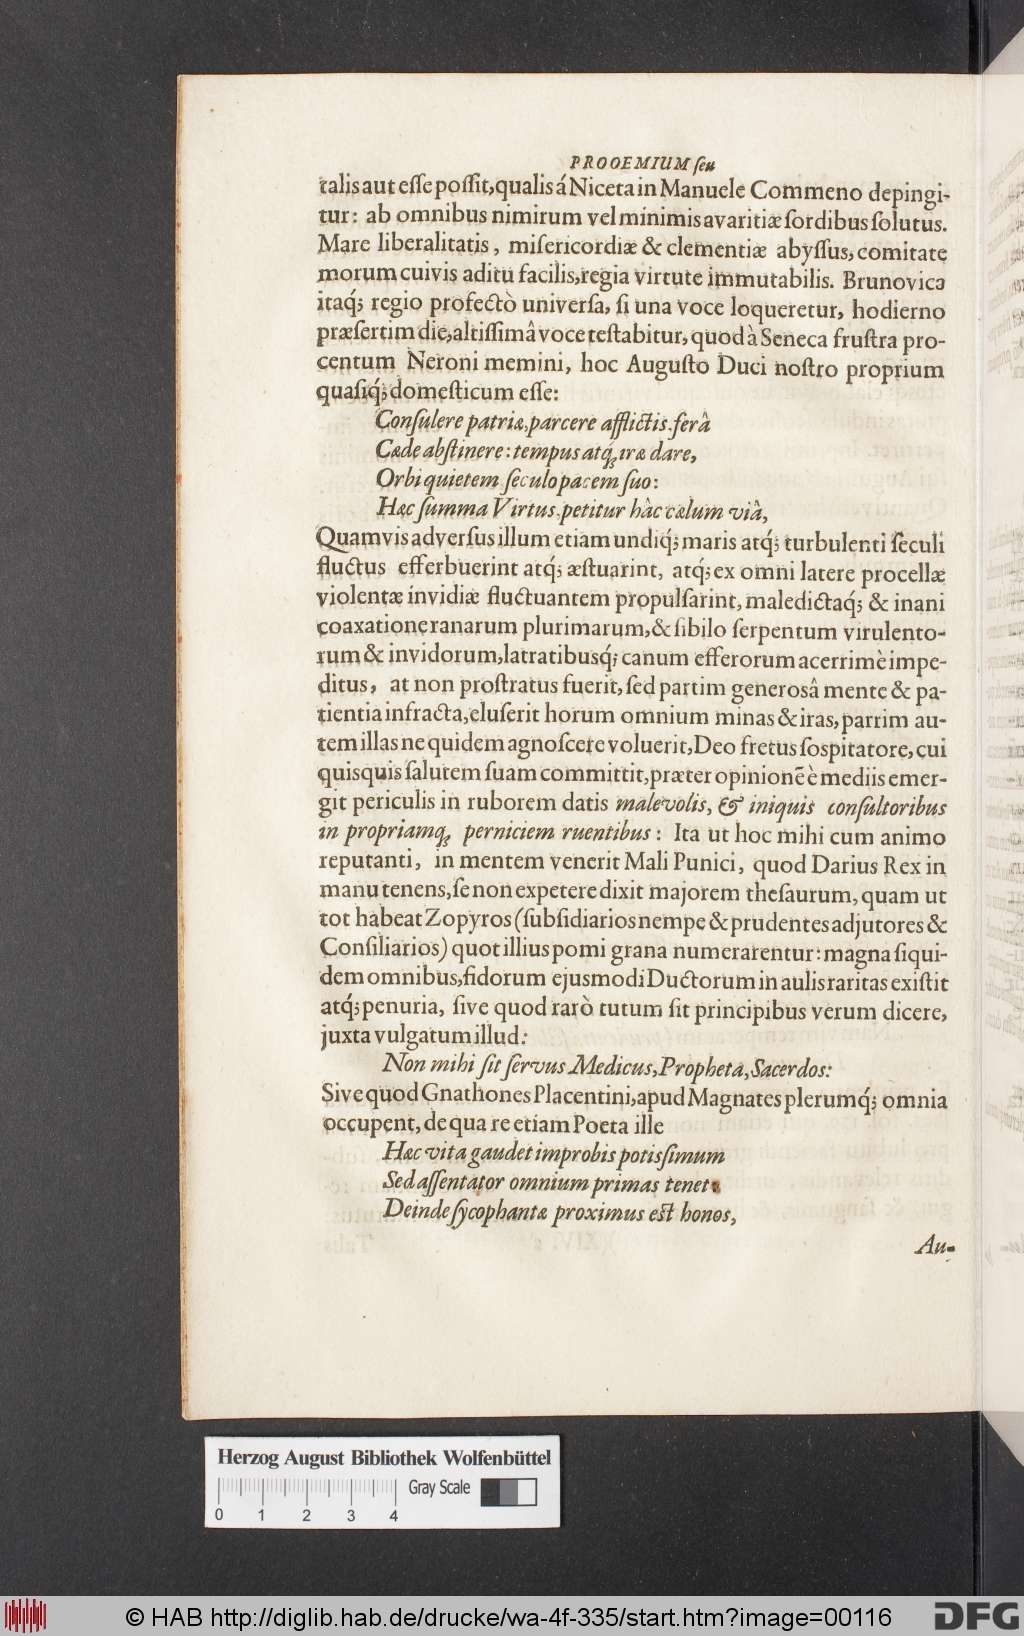 PROOEMIUM ſeu
talis aut eſſe poſſit, qualis á Niceta in Manuele Commeno depingi-
tur: ab omnibus nimirum vel minimis avaritiæ ſordibus ſolutus.
Mare liberalitatis, miſericordiæ & clementiæ abyſſus, comitate
morum cuivis aditu facilis, regia virtute immutabilis. Brunovica
itaq́; regio profectò univerſa, ſi una voce loqueretur, hodierno
præſertim die, altiſſimâ voce teſtabitur, quod à Seneca fruſtra pro-
centum Neroni memini, hoc Auguſto Duci noſtro proprium
quaſiq́; domeſticum eſſe:
Conſulere patriæ, parcere afflictis. ferâ
Cæde abſtinere: tempus atq; iræ dare,
Orbi quietem ſeculo pacem ſuo:
Hæc ſumma Virtus. petitur hâc cælum viâ,
Quamvis adverſus illum etiam undiq́; maris atq́; turbulenti ſeculi
fluctus efferbuerint atq́; æſtuarint, atq́; ex omni latere procellæ
violentæ invidiæ fluctuantem propulſarint, maledictaq́; & inani
coaxatione ranarum plurimarum, & ſibilo ſerpentum virulento-
rum & invidorum, latratibusq́; canum efferorum acerrimè impe-
ditus, at non proſtratus fuerit, ſed partim generosâ mente & pa-
tientia infracta, eluſerit horum omnium minas & iras, parrim au-
tem illas ne quidem agnoſcere voluerit, Deo fretus ſoſpitatore, cui
quisquis ſalutem ſuam committit, præter opinionē è mediis emer-
git periculis in ruborem datis malevolis, & iniquis conſultoribus
in propriamq; perniciem ruentibus: Ita ut hoc mihi cum animo
reputanti, in mentem venerit Mali Punici, quod Darius Rex in
manu tenens, ſe non expetere dixit majorem theſaurum, quam ut
tot habeat Zopyros (ſubſidiarios nempe & prudentes adjutores &
Conſiliarios) quot illius pomi grana numerarentur: magna ſiqui-
dem omnibus, fidorum ejusmodi Ductorum in aulis raritas exiſtit
atq́; penuria, ſive quod rarò tutum ſit principibus verum dicere,
juxta vulgatum illud:
Non mihi ſit ſervus Medicus, Propheta, Sacerdos:
Sive quod Gnathones Placentini, apud Magnates plerumq́; omnia
occupent, de qua re etiam Poeta ille
Hæc vita gaudet improbis potisſimum
Sed aſſentator omnium primas tenet
Deinde ſycophantæ proximus eſt honos,
Au-
Herzog August Bibliothek Wolfenbüttel
Gray Scale
0 1 2 3 4
© HAB http://diglib.hab.de/drucke/wa-4f-335/start.htm?image=00116
DFG